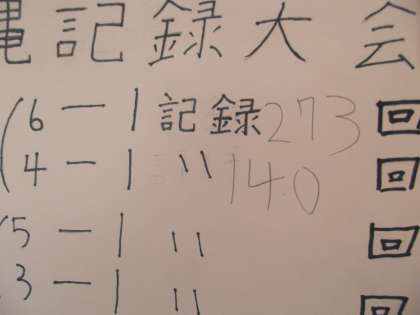 記録大会
(6-1 記録273回
(4-1 〃 140回
(5-1 〃 回
3-1 〃 回